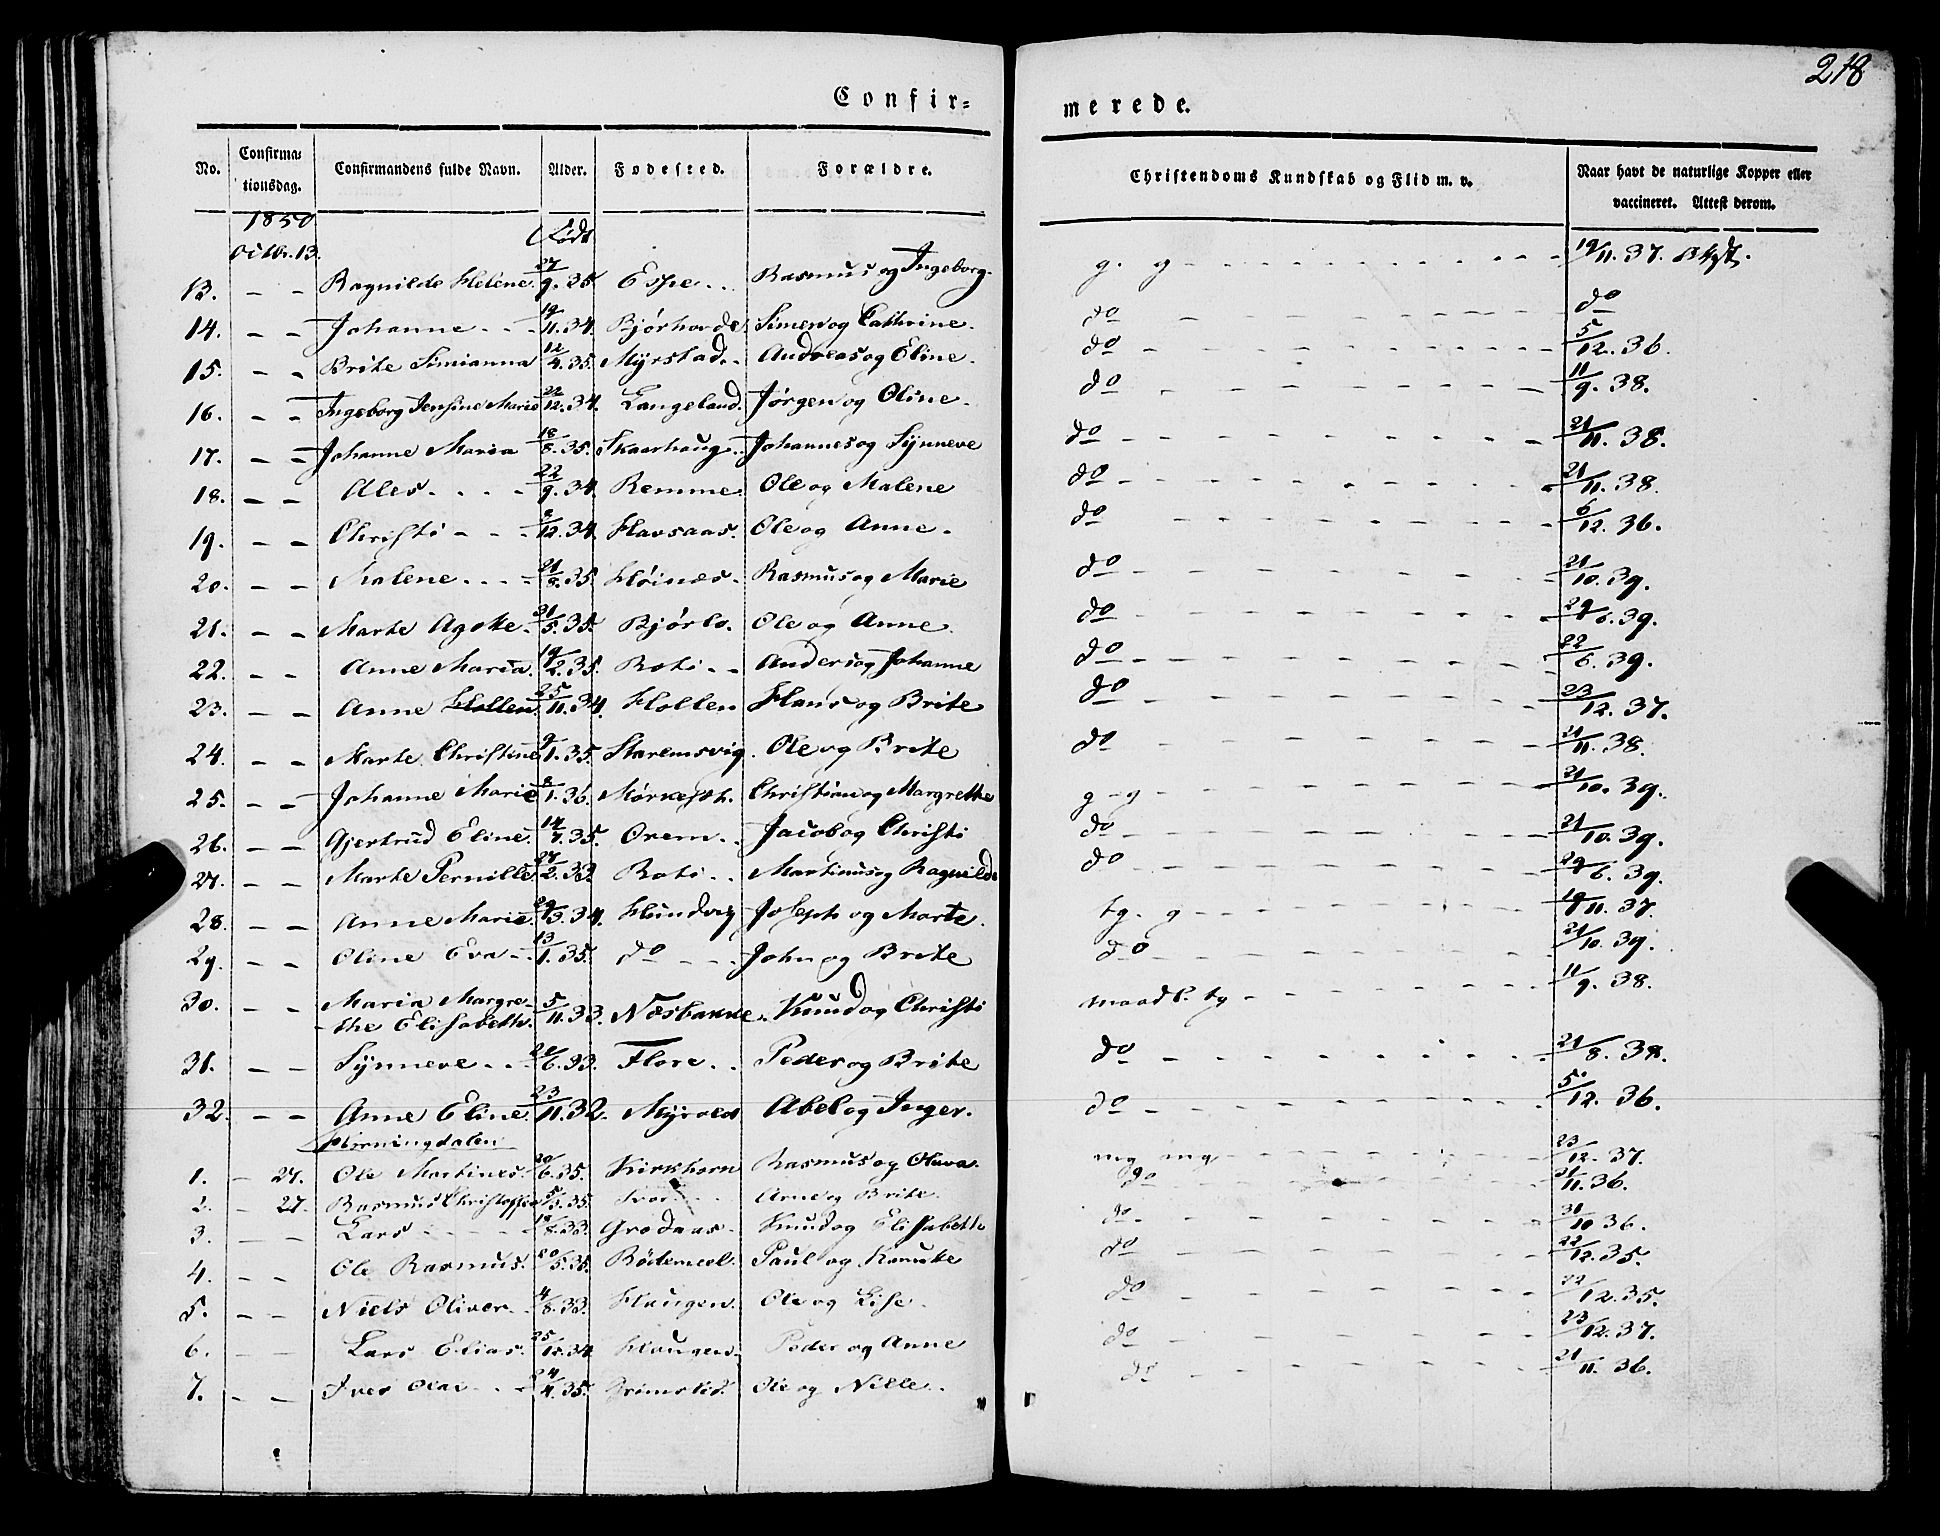 218
Confir=
merede.
No. Confirma= tionsdag. Confirmandens fulde Navn. Alder. Fødested. Forældre. Christendoms Kundskab og Flid m. v. Naar havt de naturlige Kopper eller vaccineret. Attest derom.
1850 Født
Octbr. 13.
13. – – Ragnilde Helene 27/9. 35. Espe Rasmus og Ingeborg. g. g 19/11. 37.
14. – – Johanne 19/11. 34. Bjørhovde Simen og Cathrine. do do
15. – – Brite Simianna 12/4. 35. Myrstad Andreas og Eline. do 5/12. 36.
16. – – Ingeborg Jensine Marie 22/12. 34. Langeland. Jørgen og Oline. do 11/9. 38.
17. – – Johanne Maria 18/8. 35. Skaarhaug Johannes og Synneve do 21/11. 38.
18. – – Ales 22/9. 34. Remme Ole og Malene do 21/11. 38.
19. – – Christi 8/12. 34. Havsaas. Ole og Anne. do 6/12. 36.
20. – – Malene 21/8. 35. Høines. Rasmus og Marie do 21/10. 39.
21. – – Marte Agate. 31/5. 35. Bjørlo. Ole og Anne. do 29/6. 39.
22. – – Anne Maria. 19/2. 35. Roti Anders og Johanne do 22/6. 39.
23. – – Anne Hollen 25/11. 34. Hollen Hans og Brite do 23/12. 37.
24. – – Marte Christine 9/1. 35. Staremsvig. Ole og Brite do 21/11. 38.
25. – – Johanne Marie 8/1. 36. Christian og Margrethe g – g 21/10. 39.
26. – – Gjertrud Eline. 14/7. 35. Orem Jacob og Christi do 21/10. 39.
27. – – Marte Pernille 27/2. 33. Roti Martinus og Ragnilde do 29/6. 39.
28. – – Anne Marie. 29/3. 34. Hundvig Joseph og Marte. tg. g 19/11. 37.
29. – – Oline Eva 13/1. 35. do John og Brite do 21/10. 39.
30. – – Maria Margre-
the Elisabeth. 5/11. 33. Næsbakke. Knud og Christi maadl. tg 11/9. 38.
31. – – Synneve 21/6. 33. Flore Peder og Brite do 21/8. 38.
32. – – Anne Eline 23/11. 32. Myrold Abel og Inger. do 5/12. 36.
Hornindalen
1. – 27. Ole Martines 20/6. 35. Kirkhorn Rasmus og Oluva. mg mg 23/12. 37.
2. – 27. Rasmus Christoffer 5/3. 35. Arne og Brite do 21/11. 36.
3. – – Lars 18/8. 33. Grodaas Knud og Elisabeth do 31/10 36.
4. – – Ole Rasmus. 20/5. 35. Paul og do 22/12. 35.
5. – – Niels Oliver 4/8. 33. Haugen. Ole og Lise. do 22/12. 35.
6. – – Lars Elias. 25/12. 34. Haugen Peder og Anne do 23/12. 37.
7. – – Iver Olai 24/4. 35. Grimstad. Ole og Nille do 21/11. 36.